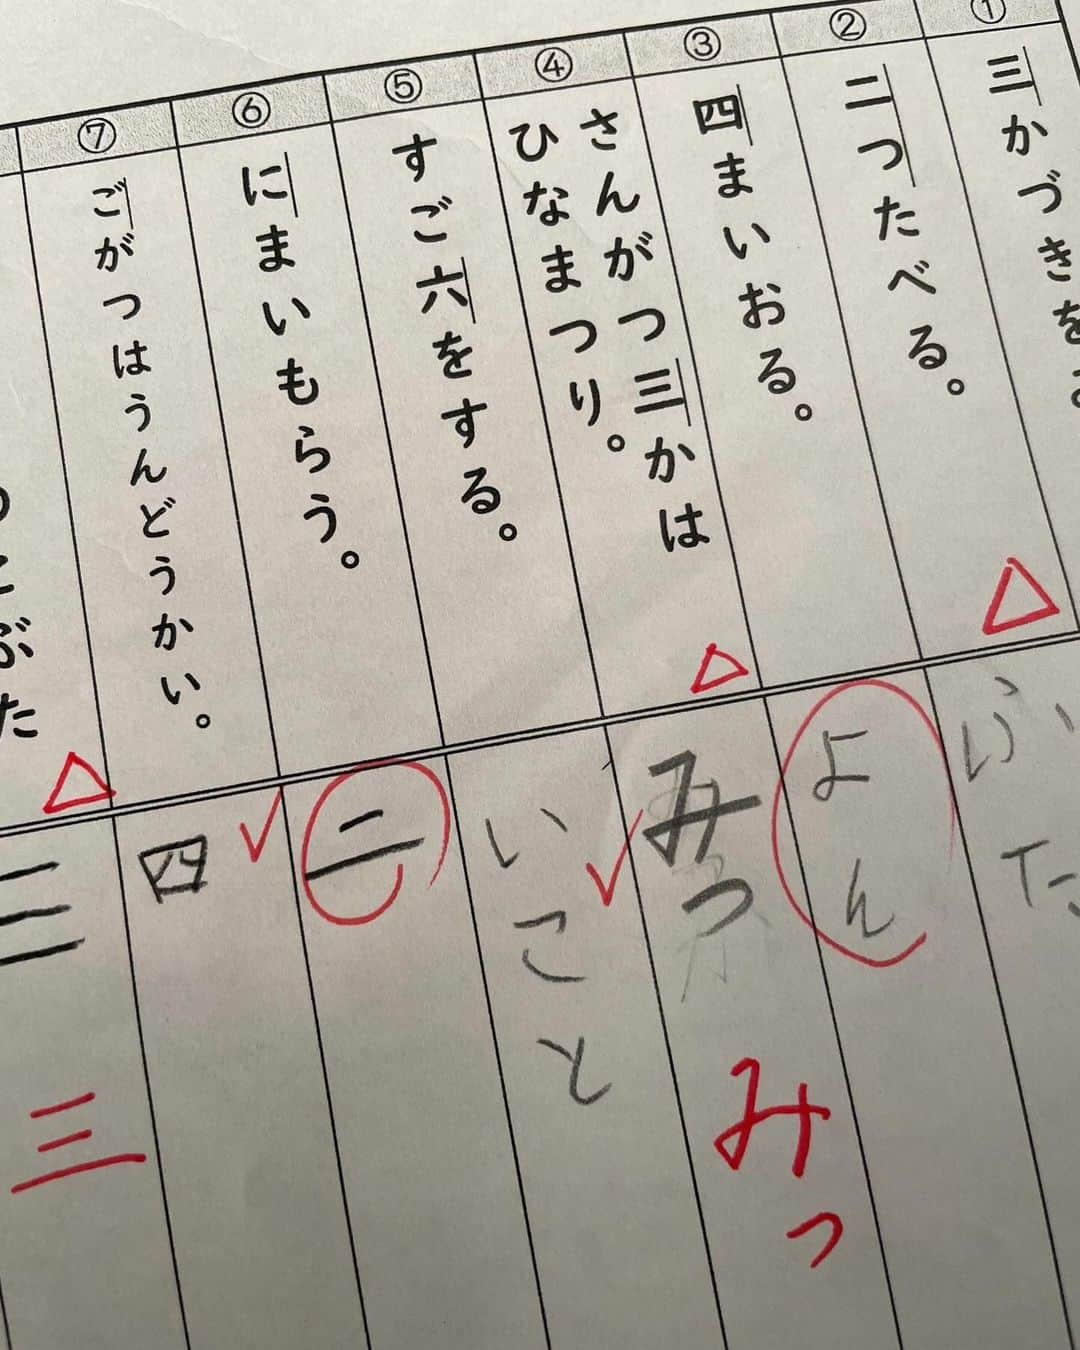 ①
三かづきを
②
二つたべる。
③
四まいおる。
④
さんがつ三かは
ひなまつり。
⑤
すご六をする。
⑥
にまいもらう。
⑦
ごがつはうんどうかい。
ぶた
ふた
よん
みつ
みっ
いこと
二
四
三
三